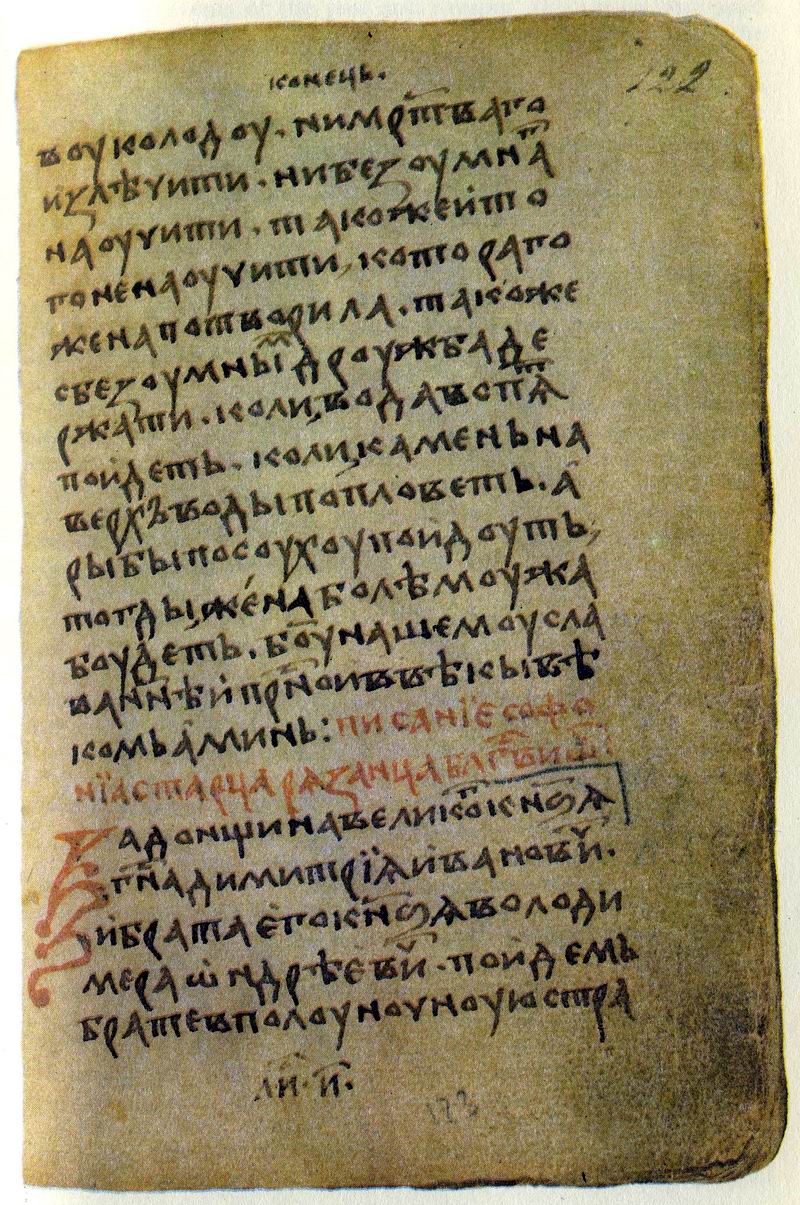 конець.
122.
воуколодоу. нимр҃тваго
излѣчити. нибезоумна
наоучити. такожеито
гоненаоучити, котораго
женапотворила. такоже
сбезумныⷨ дроужбаде
ржати. коли, водавоспⷮѧ
поидеть. коли, каменьна
верхъводыпопловеть. а
рыбыпосоухоупоидоуть,
тогды, женаболѣмоужа
боудеть. бо҃унашемоусла
ваннѣипрⷭ҇ноивъвѣкывѣ
комьаминь: писаніесофо
ніастарцарѧзанцаблгⷭ҇виѿⷱ҇і
задонщинавеликоⷢкн҃ѕѧ
гⷭ҇надимитріѧивановиⷱ.
ибратаегокн҃ѕѧволоди
мераѡндрѣевиⷱ. поидемь
братевполоунѹноуюстра
ли. и҃.
123